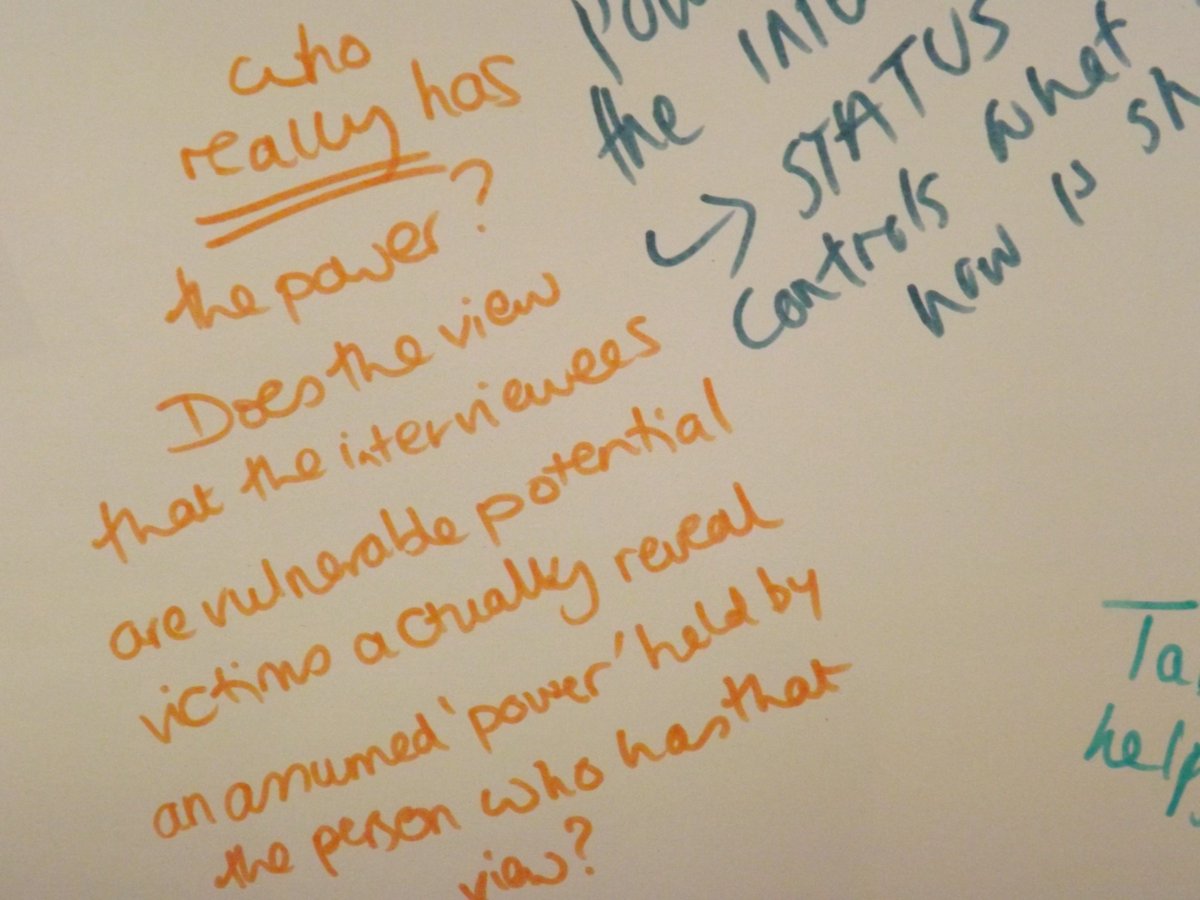 who
really has
the power?
Does the view
that the interviewees
are vulnerable potential
victims actually reveal
an assumed 'power' held by
the person who has that
view?
the
STATUS
controls what
how is